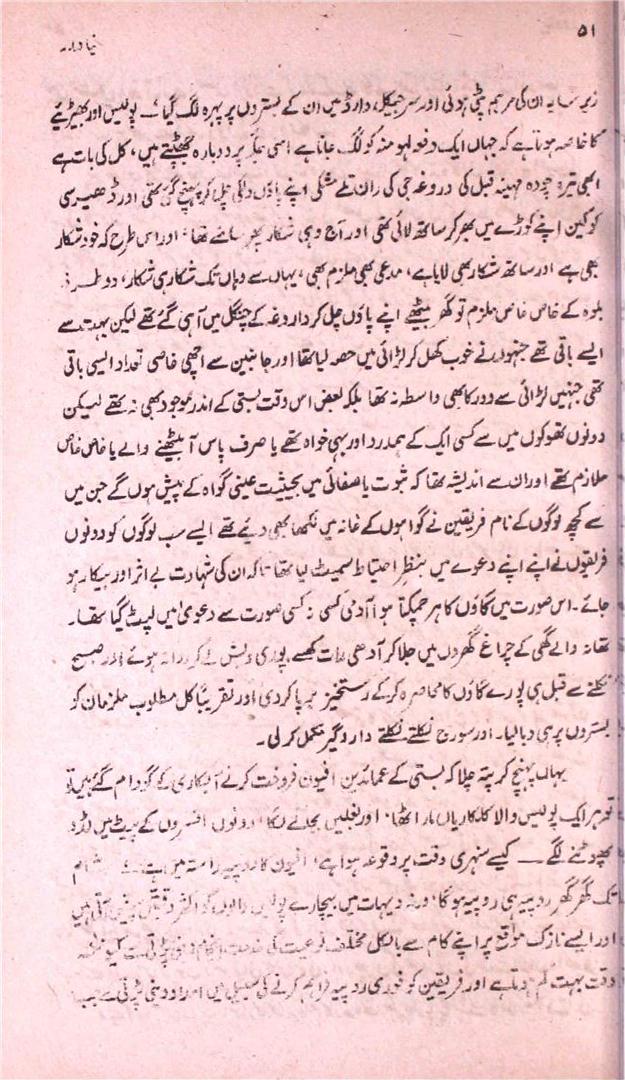 ۵۱
نیا دور
زیر سایہ ان کی مرہم پٹی ہوئی اور سرجیکل وارڈ میں ان کے بستروں پر پہرہ لگ گیا، — پولیس اور بھیڑیئے
کا خاصہ ہوتا ہے کہ جہاں ایک دفعہ لہو منہ کو لگ جاتا ہے اسی جگہ پر دوبارہ جھپٹتے ہیں، کل کی بات ہے
ابھی تیرہ چودہ مہینہ قبل کی دروغہ جی کی ران تلے مشکی اپنے پاؤں چل کر پہنچ گئی تھی اور ڈھیر سی
کوکین اپنے کوزے میں بھر کر ساتھ لائی تھی اور آج وہی شکار پھر سامنے تھا، اور اس طرح کہ خود شکار
بھی ہے اور ساتھ شکار بھی لایا ہے، مدعی بھی ملزم بھی، یہاں سے وہاں تک شکار ہی شکار، دو طرفہ
بلوہ کے خاص خاص ملزم تو گھر بیٹھے اپنے پاؤں چل کر داروغہ کے چنگل میں آ ہی گئے تھے لیکن بہت سے
ایسے باقی تھے جنہوں نے خوب کھل کر لڑائی میں حصہ لیا تھا اور جانبین سے اچھی خاصی تعداد ایسی باقی
تھی جنہیں لڑائی سے دور کا بھی واسطہ نہ تھا بلکہ بعض اس وقت بستی کے اندر موجود بھی نہ تھے لیکن
دونوں تھوکوں میں سے کسی ایک کے ہمدرد اور بہی خواہ تھے یا صرف پاس آ بیٹھنے والے یا خاص خاص
ملازم تھے اور ان سے اندیشہ تھا کہ ثبوت یا صفائی میں بحیثیت عینی گواہ کے پیش ہوں گے جن میں
سے کچھ لوگوں کے نام فریقین نے گواہوں کے خانہ میں لکھا بھی دیئے تھے ایسے سب لوگوں کو دونوں
فریقوں نے اپنے اپنے دعوے میں بنظرِ احتیاط لپیٹ لیا تھا تاکہ ان کی شہادت بے اثر اور بیکار ہو
جائے۔ اس صورت میں گاؤں کا ہر چمکتا ہوا آدمی کسی نہ کسی صورت سے دعویٰ میں لپٹ گیا تھا۔
تھانہ والے گھی کے چراغ گھروں میں جلا کر آدھی رات گھسے پوری لے کر روانہ ہوئے اور صبح
نکلنے سے قبل ہی پورے گاؤں کا محاصرہ کر کے رستخیز برپا کر دی اور تقریباً کل مطلوب ملزمان کو
بستروں پر ہی دبا لیا۔ اور سورج نکلتے نکلتے دار و گیر مکمل کر لی۔
یہاں پہنچ کر پتہ چلا کہ بستی کے عمائدین افیون فروخت کرنے آبکاری کے گودام گئے ہیں تو
تو ہر ایک پولیس والا کلکاریاں مار اٹھا، اور بغلیں بجانے لگا، دونوں افسروں کے پیٹ میں لڈو
پھوٹنے لگے — کیسے سنہری وقت پر وقوعہ ہوا ہے، افیون کا روپیہ راستہ میں ہے شام
تک گھر گھر روپیہ ہی روپیہ ہوگا، ورنہ دیہات میں بیچارے پولیس والوں کو اکثر دقتیں آتی ہیں
اور ایسے نازک مواقع پر اپنے کام سے بالکل مختلف نوعیت کی خدمت انجام دینی پڑتی ہے کیونکہ
وقت بہت کم ہوتا ہے اور فریقین کو فوری روپیہ فراہم کرنے کی سبیل میں امداد دینی پڑتی ہے